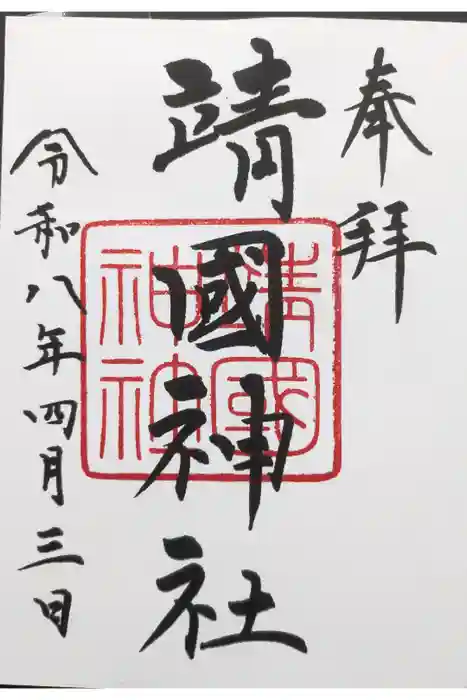 奉拝
靖國神社
靖國神社
令和八年四月三日